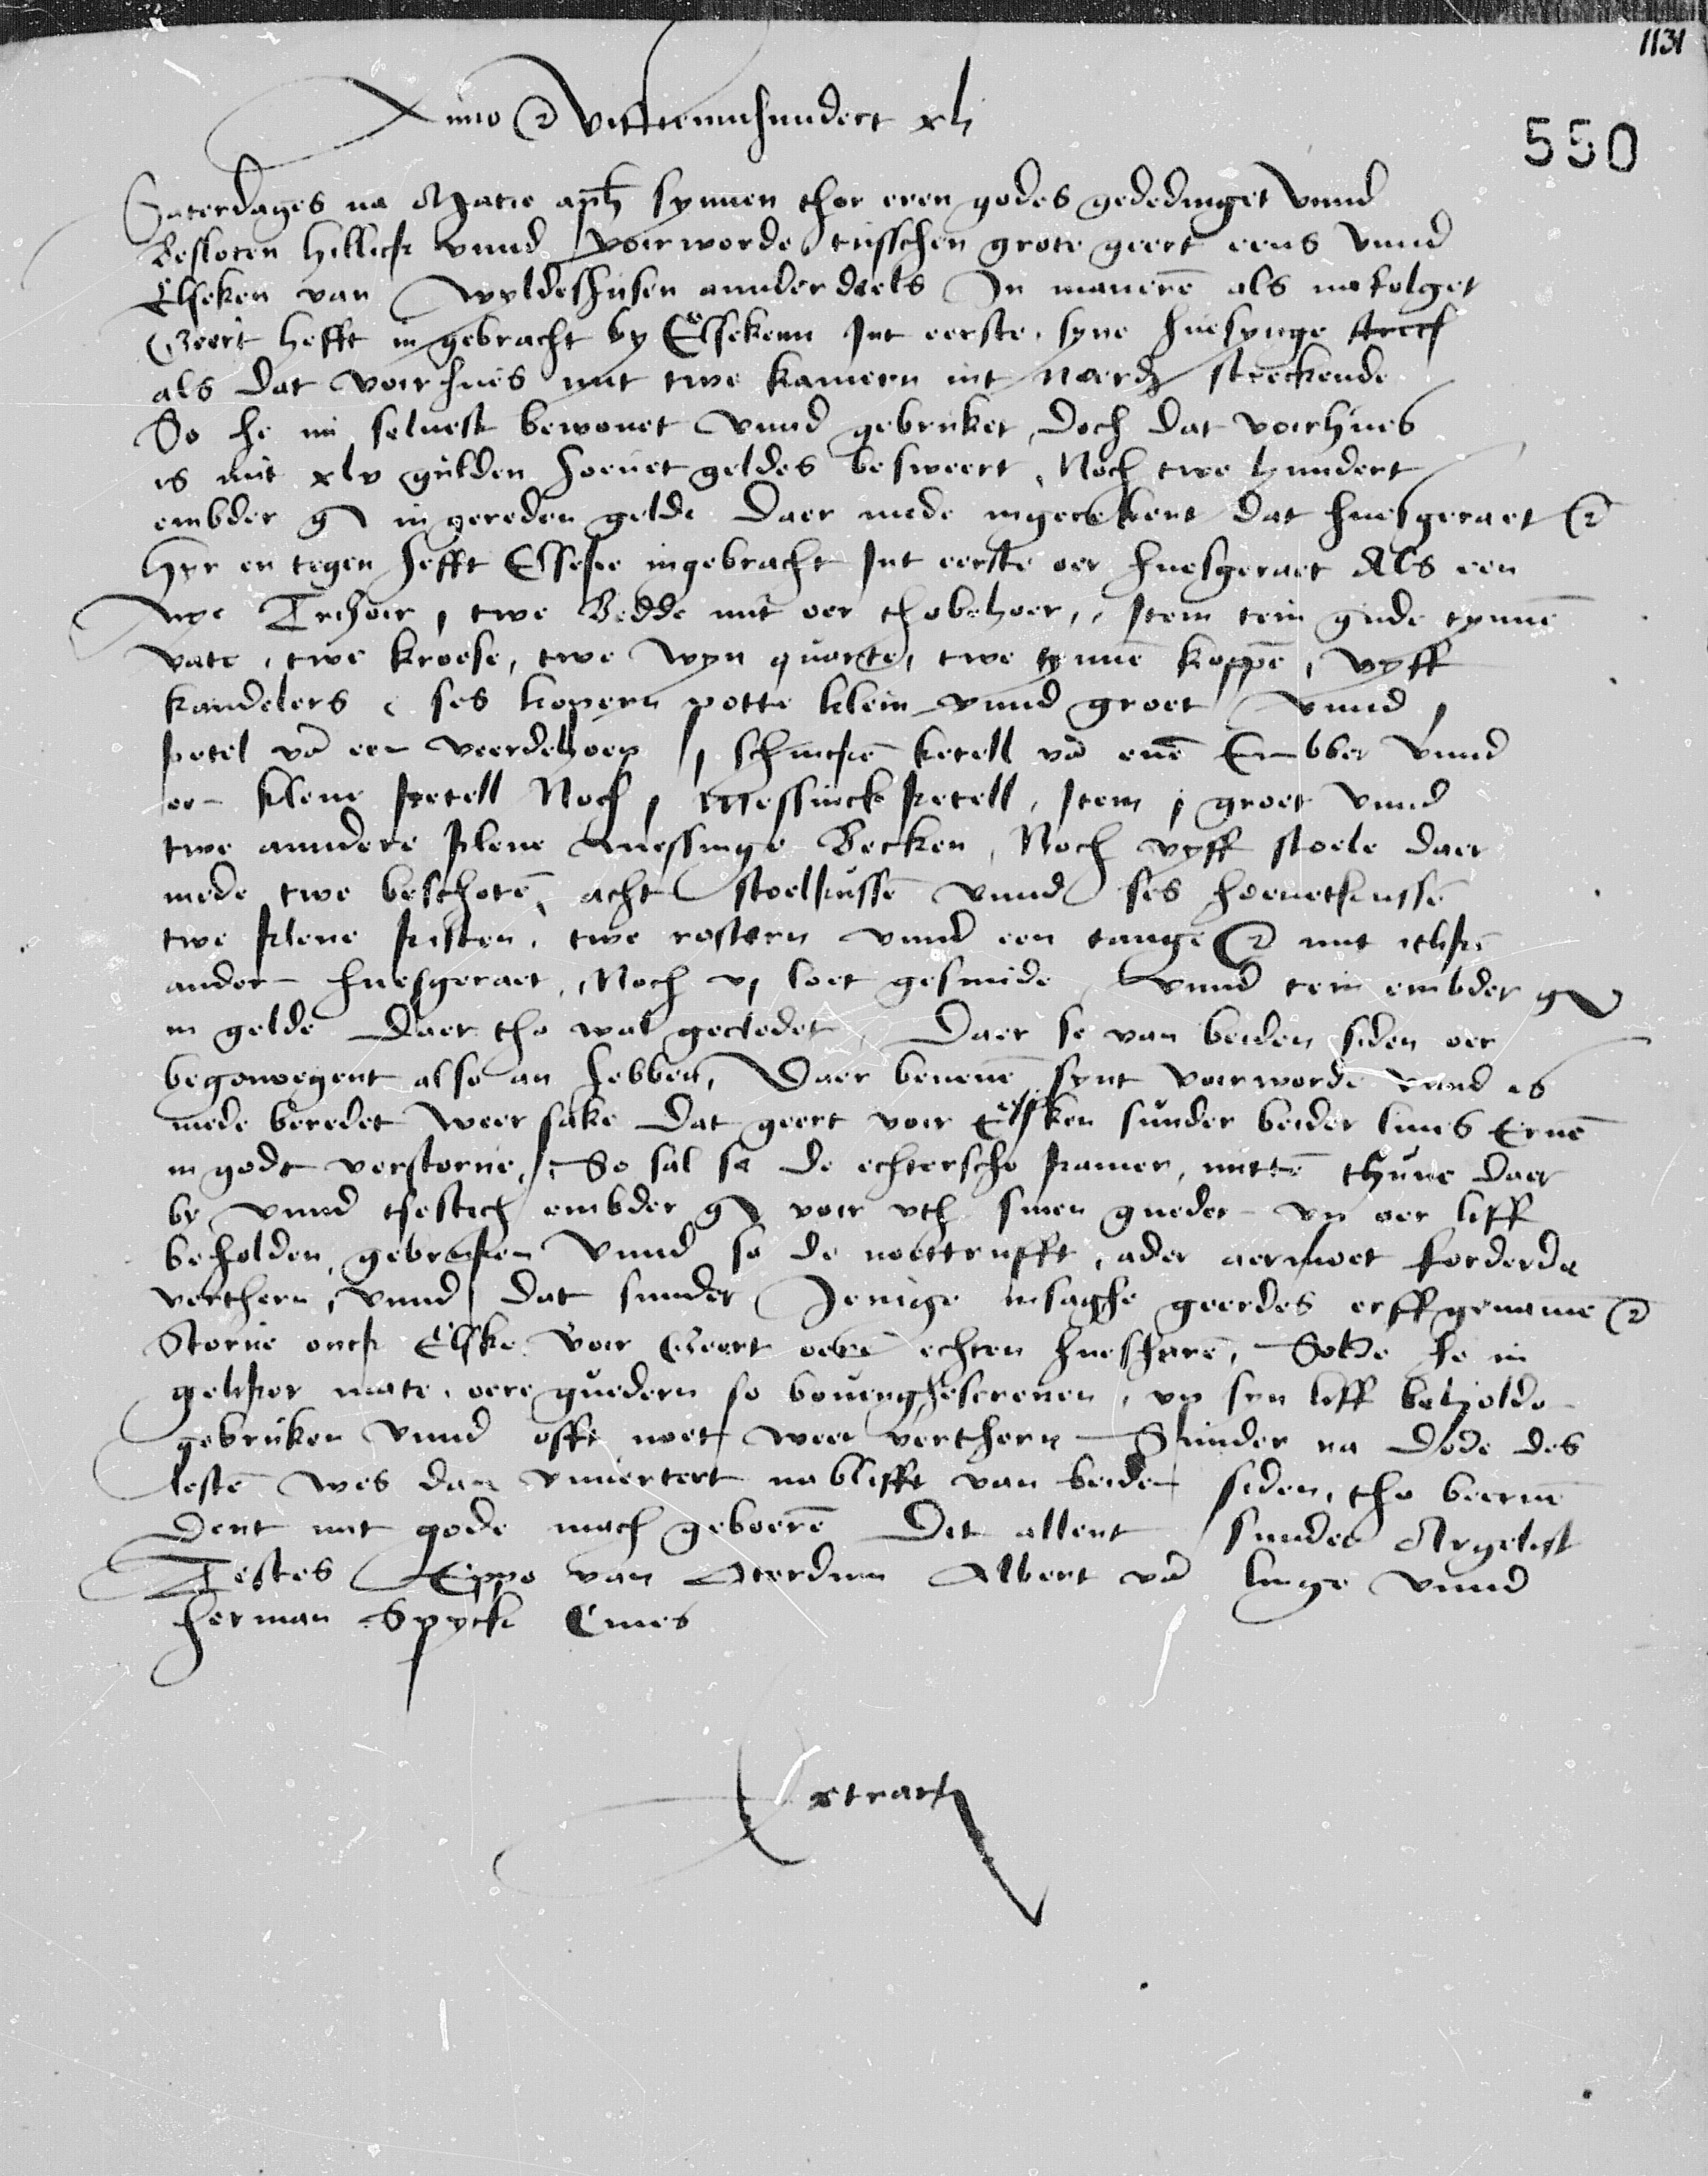 1131
Anno etc Vifftennhundert xli
550
Saterdages na Matie apli synnen thor eren godes gededinget Vnnd
Besloten hillick vnnd voirworde tusschen grote geert eens Vnnd
Elseken van Wyldeshusen annder deels In manerē als nafolget
Geert hefft in gebracht by Elsekenn Int eerste, syne huesynge
als dat voirhues mit twe kamern int noerdt streckende
So he nu seluest bewonet Vnnd gebruket, doch dat voirhues
is mit xlv gulden hoeuet geldes besweert, Noch twe hundert
embder gl in gereden gelde daer mede ingerekent dat huesgeraet etc
Hyr en tegen hefft Elseke ingebracht Int eerste oer huesgeraet Als een
nye Trisoir, twe Bedde mit oer thobehoer, Item tein gude tynnē
vate, twe kroese, twe wyn quarte, twe tynnē koppē, vyff
kandelers, ses kopern potte klein vnnd groet Vnnd j
ketel vā een veerdehoep, j schincke ketell vā enē Embber Vnnd
een klene ketell Noch j Messinck ketell, Item j groet Vnnd
twe anndere klene Messinge Becken, Noch vyff stoele daer
mede twe beschotē, acht stoelkussē Vnnd ses hoeuetkussē
twe klene kisten, twe rostern vnnd een tange etc mit itlikē
ander huesgeraet, Noch vj loet gesmide Vnnd tein embder gl
in gelde daer tho wal gecledet, Daer se van beiden siden oer
begonoegent also an hebben, Daer benenē synt voirworde vnnd is
mede beredet weer sake dat geert voir Elseken sunder beider liues Eruē
in godt verstorue, So sal se de echtersche kamer, mittē thune daer
by vnnd tsestich embder gl voir vth sinen gueder vp oer liff
beholden, gebruken Vnnd so de noettrufft, ader aermoet forderde
verthern, Vnnd dat sunder Jenige insaghe geerdes erffgename etc
Storue onck Elske voir Geert oerē echten hueshere, Solde he in
geliker mate, oere guedern so bouengescreuen, vp syn liff beholde
gebruken Vnnd offt noet weer verthern Sunder na dode des
lestē wes dan vnuertert nablifft van beiden siden, tho beeruē
Dent mit gode mach geboerē Dit allent sunder Argelist
Testes Eppo van Oterdum Albert vā linge Vnnd
herman Spyck Ciues
Extract